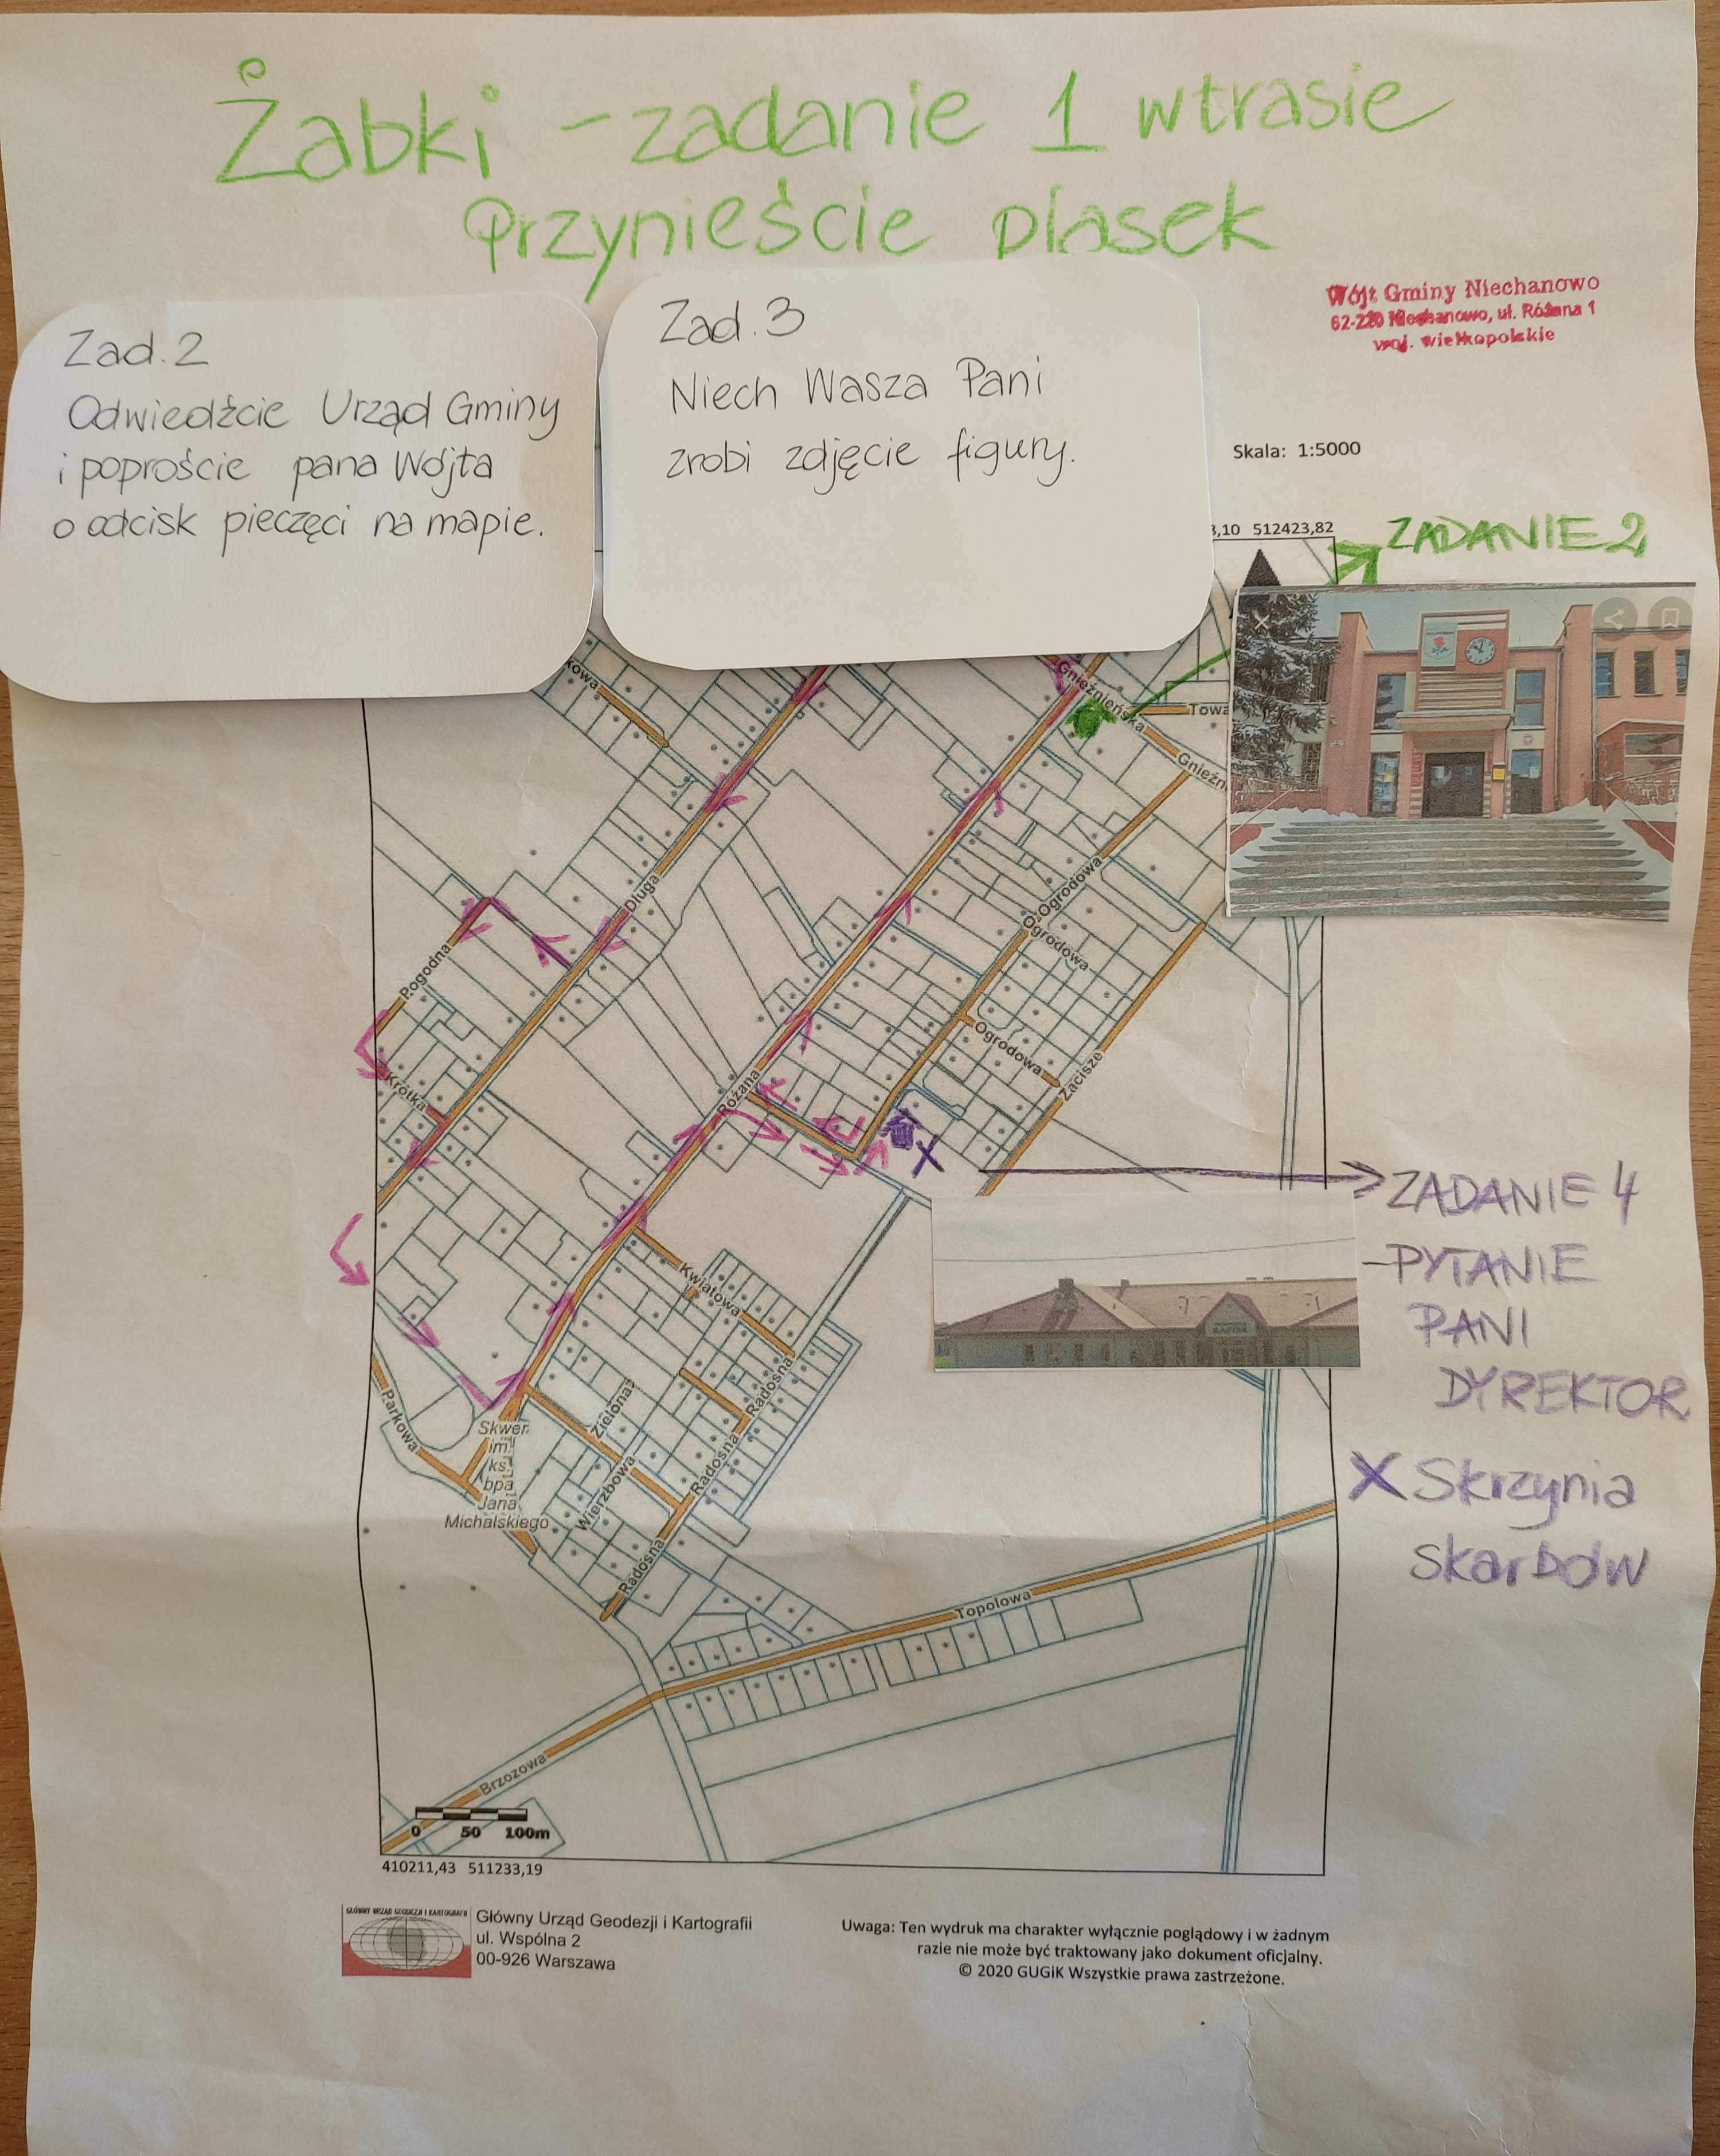 Żabki - zadanie 1 wtrasie
Przynieście piasek
Zad. 2
Odwiedźcie Urząd Gminy
i poproście pana Wójta
o odcisk pieczęci na mapie.
Zad. 3
Niech Wasza Pani
zrobi zdjęcie figury.
Wójt Gminy Niechanowo
62-220 Niechanowo, ul. Różana 1
woj. wielkopolskie
Skala: 1:5000
3,10 512423,82
ZADANIE 2
kowa
Gnieźnieńska
Towa
Gnieźn
Długa
Ogrodowa
O
Ogrodowa
Pogodna
Ogrodowa
Zacisze
Krótka
Różana
ZADANIE 4
-PYTANIE
PANI
DYREKTOR
Kwiatowa
Radosna
Zielona
Parkowa
Skwer
im.
ks.
bpa
Jana
Michalskiego
Radosna
Wierzbowa
X Skrzynia
skarbów
Radosna
Topolowa
Brzozowa
0 50 100m
410211,43 511233,19
GŁÓWNY URZĄD GEODEZJI I KARTOGRAFII
Główny Urząd Geodezji i Kartografii
ul. Wspólna 2
00-926 Warszawa
Uwaga: Ten wydruk ma charakter wyłącznie poglądowy i w żadnym
razie nie może być traktowany jako dokument oficjalny.
© 2020 GUGiK Wszystkie prawa zastrzeżone.